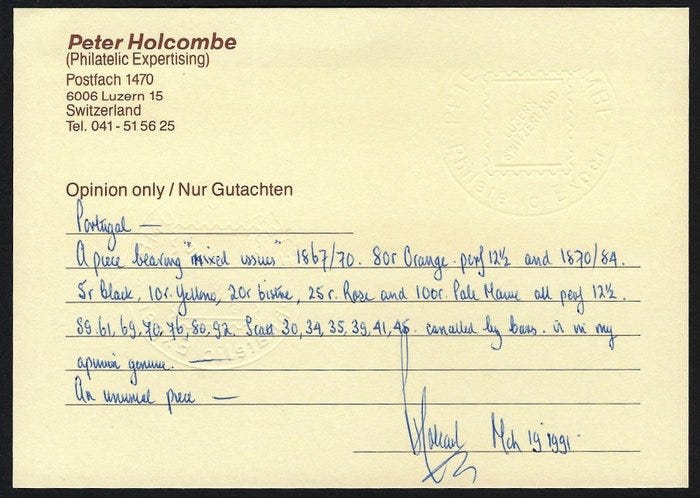 Peter Holcombe
(Philatelic Expertising)
Postfach 1470
6006 Luzern 15
Switzerland
Tel. 041 - 51 56 25
PHILATELIC EXPERT
LUZERN
SWITZERLAND
Opinion only / Nur Gutachten
Portugal —
A piece bearing "mixed issues" 1867/70. 80r Orange. perf 12½ and 1870/84.
5r black, 10r. Yellow, 20r bistre, 25r. Rose and 100r. Pale Mauve all perf 12½.
SG.61, 69, 70, 76, 80, 92. Scott 30, 34, 35, 39, 41, 45. cancelled by bars. is in my
opinion genuine. —
An unusual piece —
Holcombe Mch 19 1991.